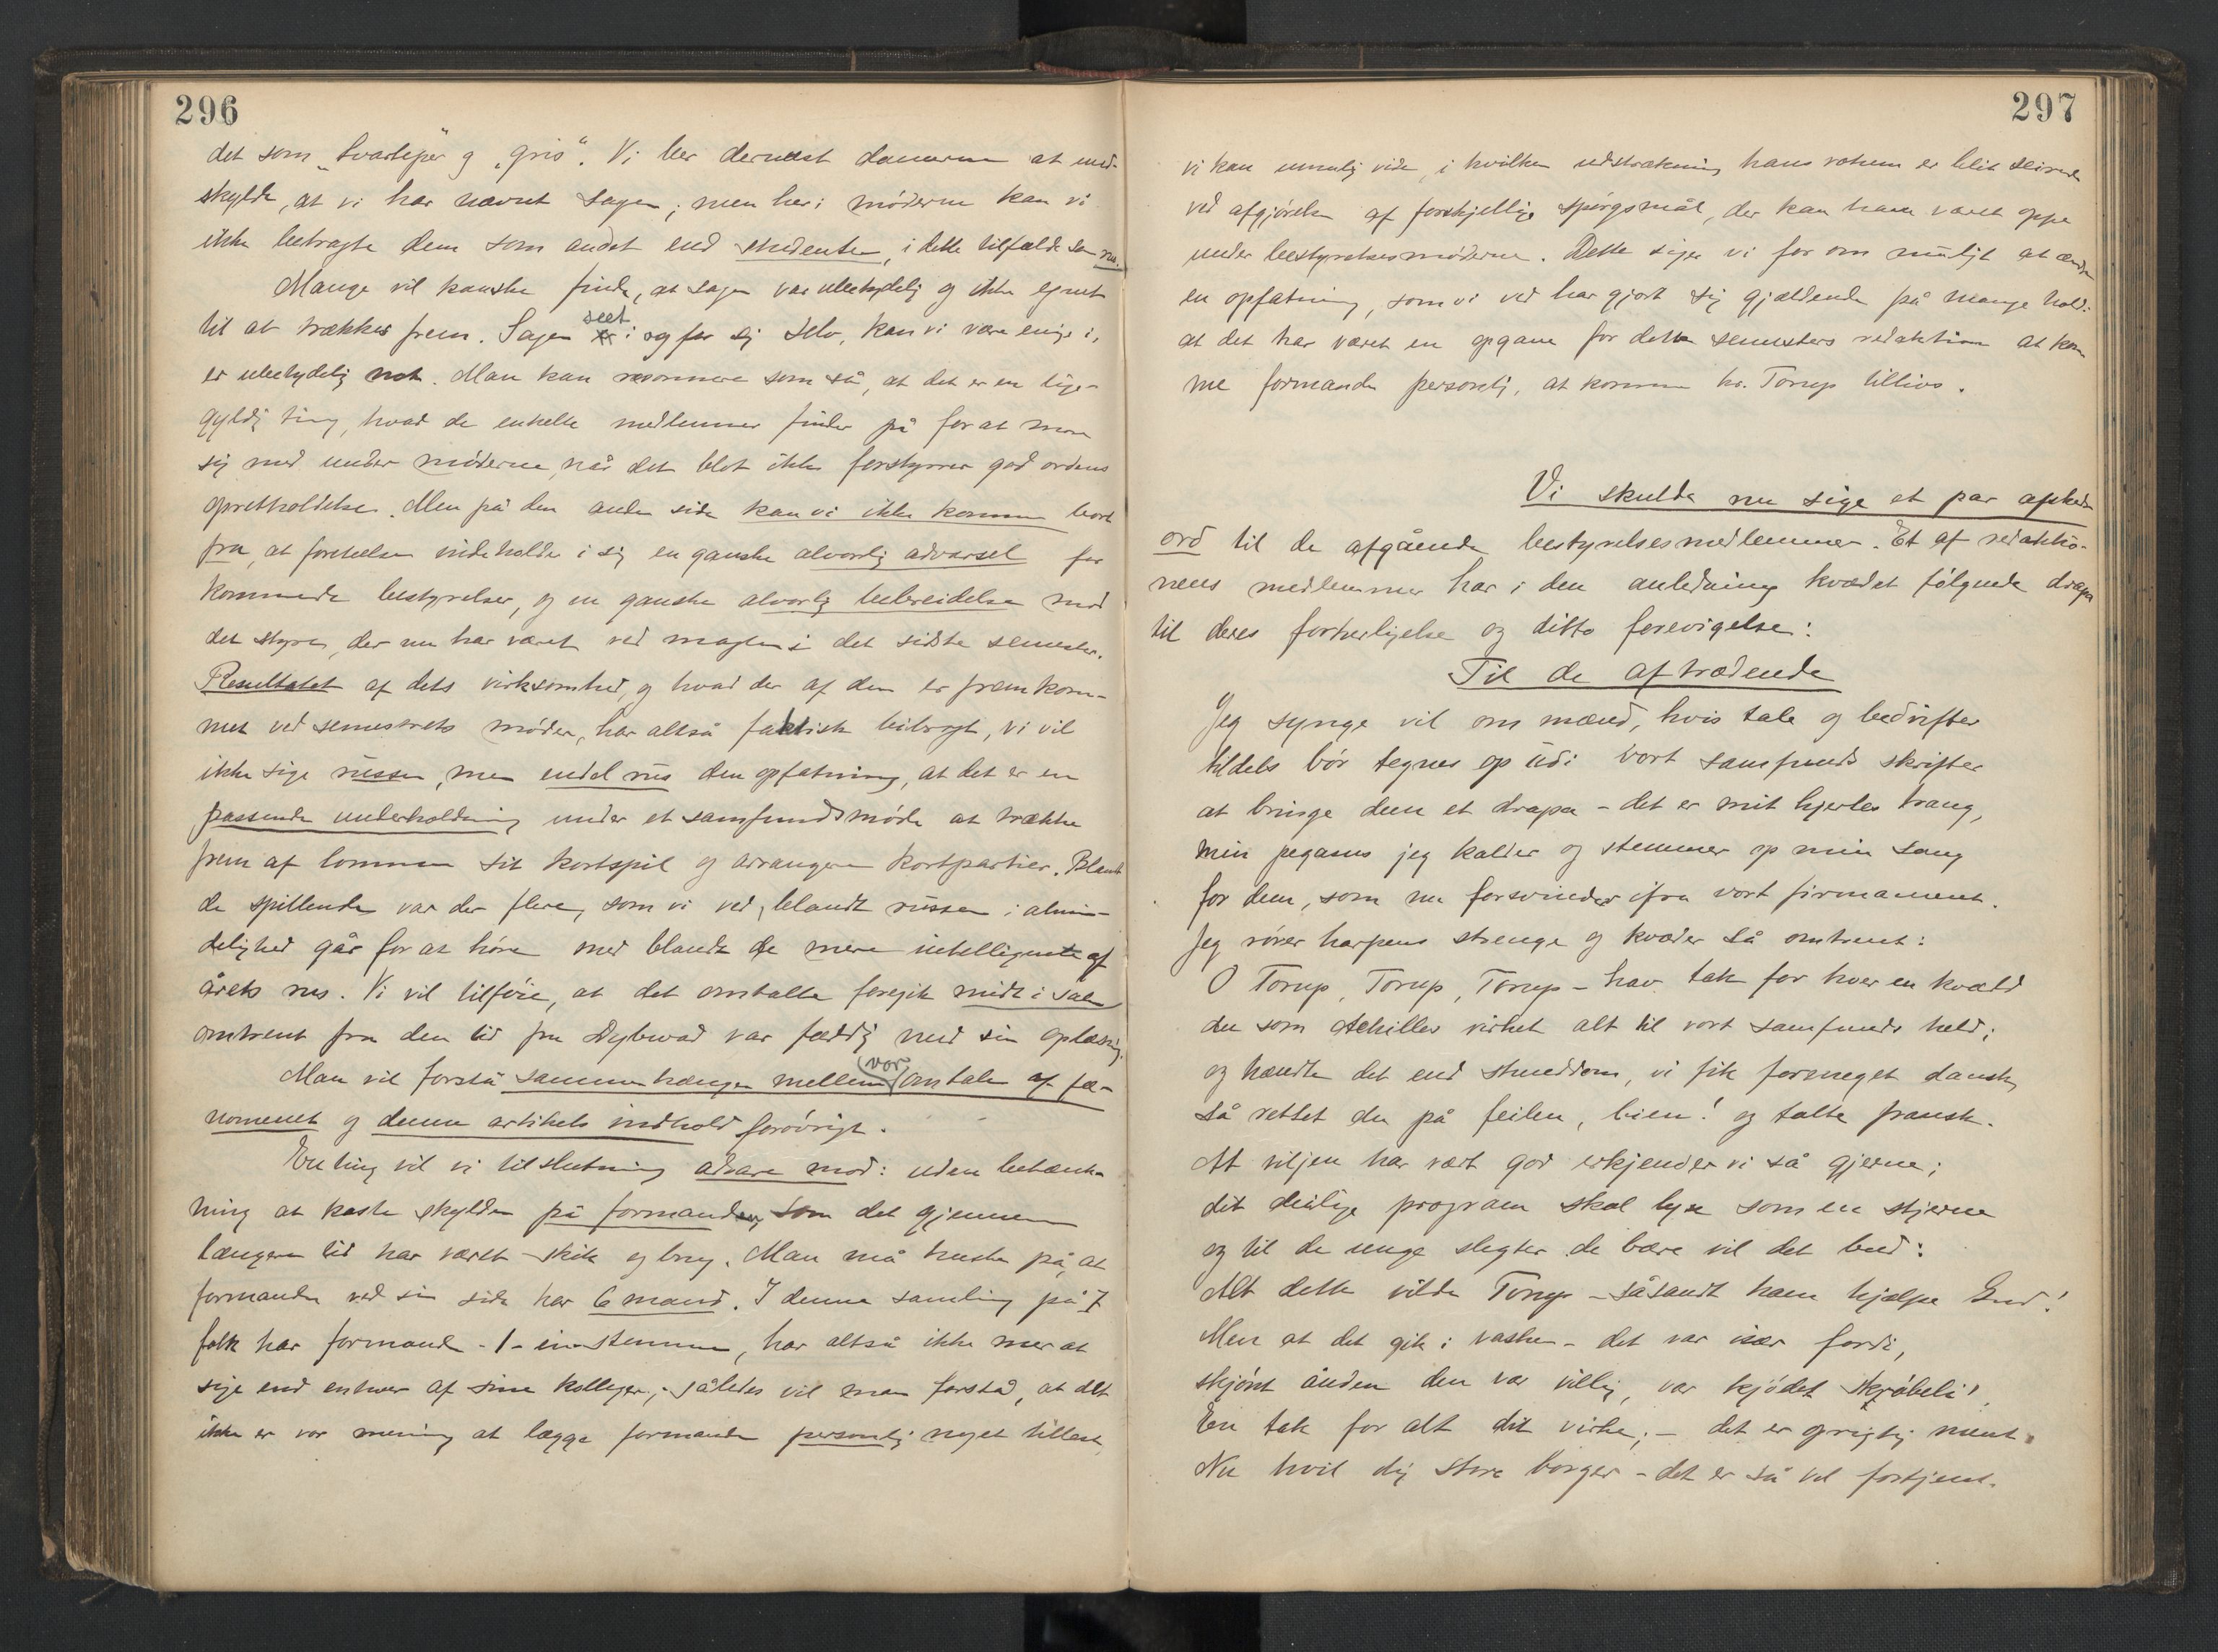 296
det som „svarteper" og „gris". Vi ber dernæst damerne at und-
skylde, at vi har nævnt sagen; men her i møderne kan vi
ikke betragte dem som andet end studenter, i dette tilfælde som rus.
Mange vil kanske finde, at sagen var ubetydelig og ikke egnet
til at trækkes frem. Sagen seet i og for sig selv, kan vi være enige i,
er ubetydelig nok. Man kan resonnere som så, at det er en lige-
gyldig ting, hvad de enkelte medlemmer finder på for at more
sig med under møderne, når det blot ikke forstyrrer god ordens
opretholdelse. Men på den anden side kan vi ikke komme bort
fra, at foreteelsen indeholder i sig en ganske alvorlig advarsel for
kommende bestyrelser, og en ganske alvorlig bebreidelse mod
det styre, der nu har været ved magten i det sidste semester.
Resultatet af dets virksomhed, og hvad der af den er fremkom-
met ved semestrets møder, har altså faktisk bibragt, vi vil
ikke sige russen, men endel rus den opfatning, at det er en
passende underholdning under et samfundsmøde at trække
frem af lommen sit kortspil og arrangere kortpartier. Blandt
de spillende var der flere, som vi ved, blandt russen i almin-
delighed går for at høre med blandt de mere intelligente af
årets rus. Vi vil tilføie, at det omtalte foregik midt i salen
omtrent fra den tid fru Dybwad var færdig med sin oplæsning.
Man vil forstå sammenhængen mellem vor omtale af fæ-
nomenet og denne artikels indhold forøvrigt.
En ting vil vi tilslutning advare mod: uden betænk-
ning at kaste skylden på formanden, som det gjennem
længere tid har været skik og brug. Man må huske på, at
formanden ved sin side har 6 mand. I denne samling på 7
folk har formanden -1- en stemme, har altså ikke mer at
sige end enhver af sine kolleger; således vil man forstå, at det
ikke er vor mening at lægge formanden personlig noget tillast,
297
vi kan umulig vide, i hvilken udstrækning hans votum er blit seirende
ved afgjørelsen af forskjellige spørgsmål, der kan have været oppe
under bestyrelsesmøderne. Dette siger vi for om muligt at ændre
en opfatning, som vi ved har gjort sig gjældende på mange hold:
at det har været en opgave for dette semesters redaktion at kom-
me formanden personlig, at komme hr. Torup tillivs.
Vi skulde nu sige et par afskeds
ord til de afgående bestyrelsesmedlemmer. Et af redaktio-
nens medlemmer har i den anledning kvædet følgende drapa
til deres forherligelse og ditto forevigelse:
Til de aftrædende
Jeg synge vil om mænd, hvis tale og bedrifter
tildels bør tegnes op udi vort samfunds skrifter
at bringe dem et drapa – det er mit hjertes trang,
min pegasus jeg kalder og stemmer op min sang
for dem, som nu forsvinder ifra vort firmament.
Jeg rører harpens strenge og kvæder så omtrent:
O Torup, Torup, Torup – hav tak for hver en kvæld
du som Achilles virket alt til vort samfunds held;
og hændte det end stundom, vi fik formeget dansk,
så rettet du på feilen, bien! og talte fransk.
At viljen har vært god erkjender vi så gjerne;
dit deilige program skal lyse som en stjerne
og til de unge slegter de bære vil det bud:
Alt dette vilde Torup – såsandt ham hjælpe Gud!
Men at det gik i vasken – det var især fordi,
skjønt ånden den var villig, var kjødet skrøbeli'.
En tak for alt dit virke; – det er oprigtig ment.
Nu hvil dig store borger – det er så vel fortjent.